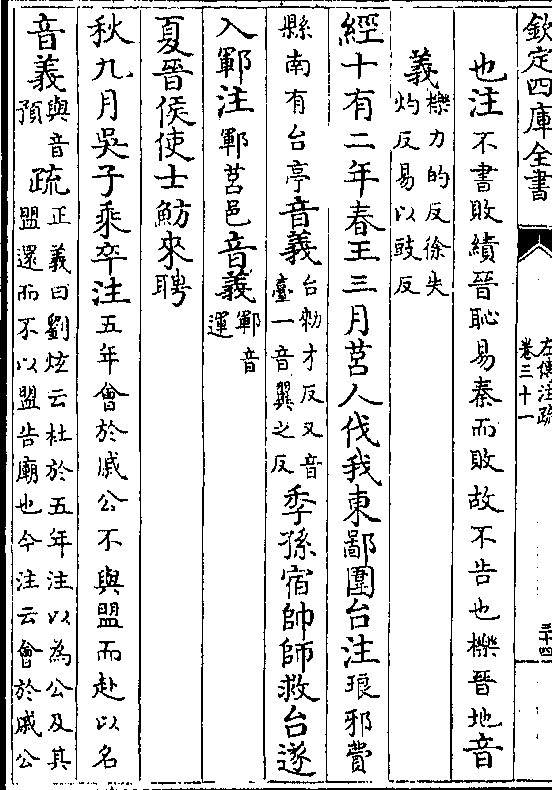 欽定四庫全書
左傳注疏
卷三十一
二十四
也注不書敗績晉恥易秦而敗故不告也櫟晉地音
義櫟力的反徐失灼反易以豉反
經十有二年春王三月莒人伐我東鄙圍台注琅邪費
縣南有台亭音義台勑才反又音臺一音翼之反季孫宿帥師救台遂
入鄆注鄆莒邑音義鄆音運
夏晉侯使士魴來聘
秋九月吳子乘卒注五年會於戚公不與盟而赴以名
音義與音預疏正義曰劉炫云杜於五年注以為公及其盟還而不以盟告廟也今注云會於戚公